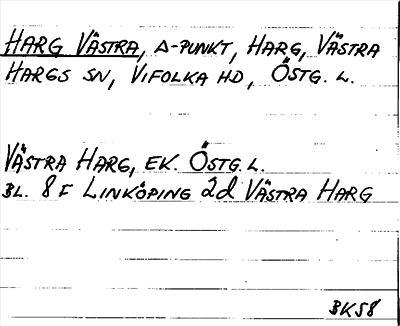 HARG VÄSTRA, Δ-PUNKT, HARG, VÄSTRA
HARGS SN, VIFOLKA HD, ÖSTG. L.
VÄSTRA HARG, EK. ÖSTG. L.
BL. 8 F LINKÖPING 2d VÄSTRA HARG
BK58